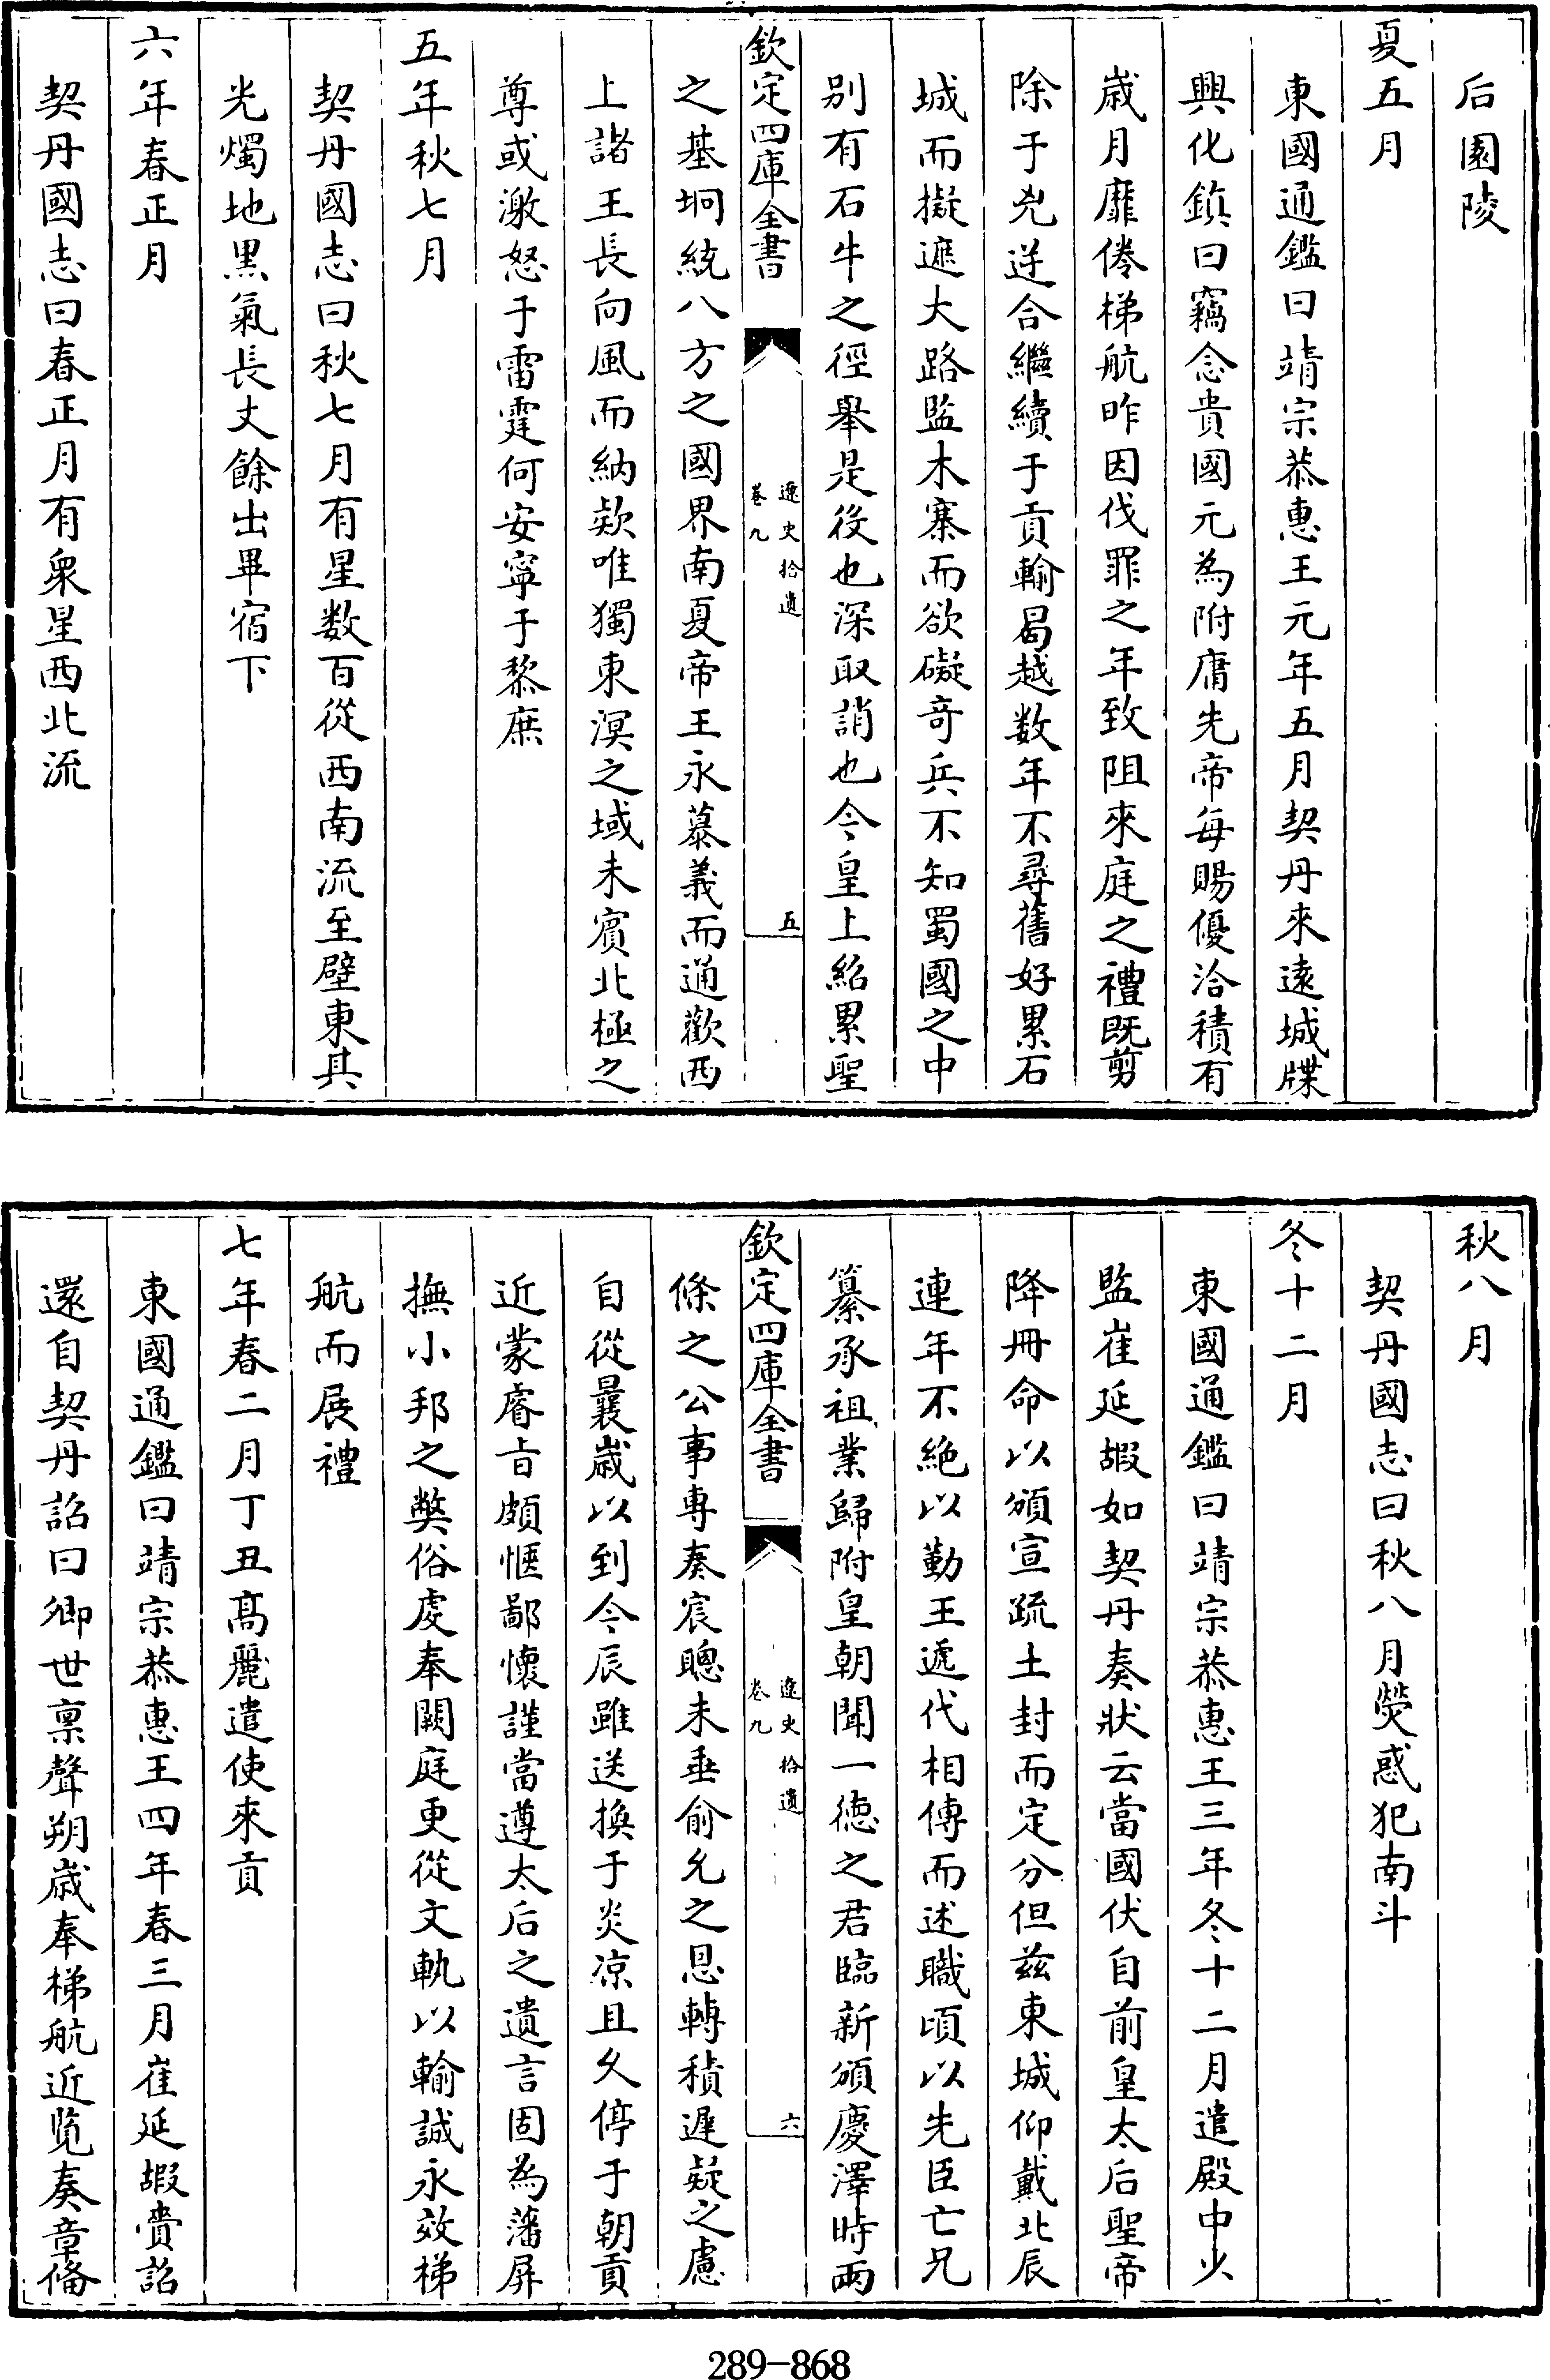 后園陵
夏五月
東國通鑑曰靖宗恭惠王元年五月契丹來遠城牒
興化鎮曰竊念貴國元為附庸先帝每賜優洽積有
歲月靡倦梯航昨因伐罪之年致阻來庭之禮既剪
除于兇逆合繼續于貢輸曷越数年不尋舊好累石
城而擬遮大路監木寨而欲礙竒兵不知蜀國之中
別有石牛之徑舉是後也深取誚也今皇上紹累聖
欽定四庫全書
遼史拾遺
卷九
五
之基坰統八方之國界南夏帝王永慕義而通歡西
上諸王長向風而納欵唯獨東溟之域未賓北極之
尊或激怒于雷霆何安寧于黎庶
五年秋七月
契丹國志曰秋七月有星数百從西南流至壁東其
光燭地黒氣長丈餘出畢宿下
六年春正月
契丹國志曰春正月有衆星西北流
秋八月
契丹國志曰秋八月熒惑犯南斗
冬十二月
東國通鑑曰靖宗恭惠王三年冬十二月遣殿中少
監崔延嘏如契丹奏狀云當國伏自前皇太后聖帝
降冊命以頒宣疏土封而定分但兹東城仰戴北辰
連年不絶以勤王遞代相傳而述職頃以先臣亡兄
纂承祖業歸附皇朝聞一徳之君臨新頒慶澤時兩
欽定四庫全書
遼史拾遺
卷九
六
條之公事専奏宸聰未垂俞允之恩轉積遲疑之慮
自從曩歲以到今辰雖送換于炎凉且久停于朝貢
近蒙睿旨頗愜鄙懷謹當遵太后之遺言固為藩屏
撫小邦之弊俗虔奉闕庭更從文軌以輸誠永效梯
航而展禮
七年春二月丁丑髙麗遣使來貢
東國通鑑曰靖宗恭惠王四年春三月崔延嘏賫詔
還自契丹詔曰卿世禀聲朔歲奉梯航近覧奏章俻
289-868